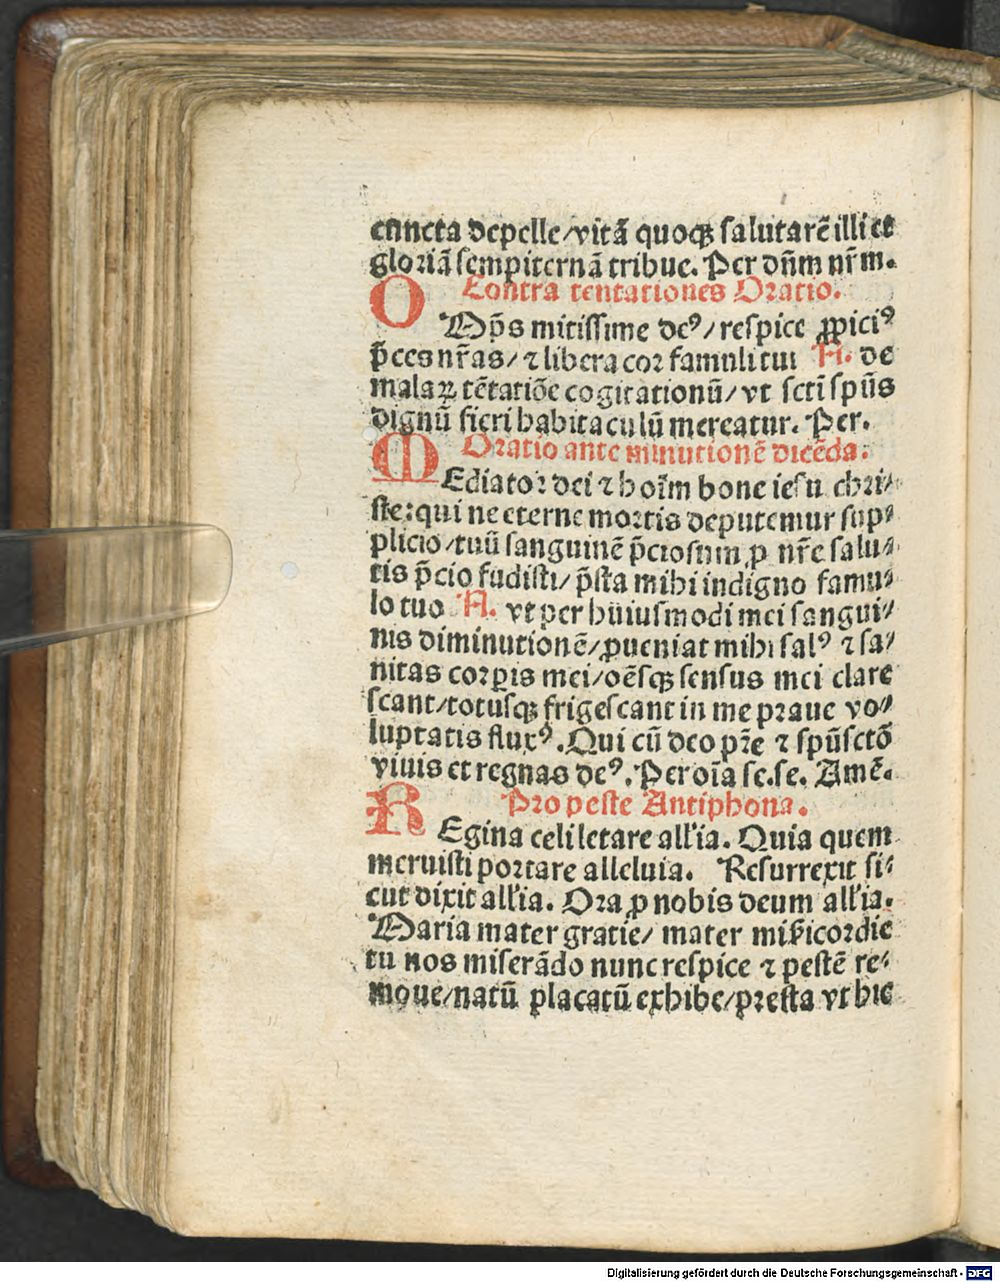 cuncta depelle/vitā quoqꝫ salutarē illi et
gloriā sempiternā tribue. Per dn̄m nr̄m.
Contra tentationes Oratio.
OMp̄s mitissime deꝰ/respice ꝓpiciꝰ
p̄ces nr̄as/ ⁊ libera cor famuli tui N. de
malaꝝ tētatiōe cogitationū/ vt scti spūs
dignū fieri habitaculū mereatur. Per.
Oratio ante minutionē dicēda.
MEdiator dei ⁊ hoīm bone iesu chri⸗
ste: qui ne eterne mortis deputemur sup⸗
plicio/tuū sanguinē p̄ciosum ꝓ nr̄e salu⸗
tis p̄cio fudisti/ p̄sta mihi indigno famu⸗
lo tuo N. vt per huiusmodi mei sangui⸗
nis diminutionē/ꝓueniat mihi salꝰ ⁊ sa⸗
nitas corꝑis mei/oēsqꝫ sensus mei clare
scant/totusqꝫ frigescant in me praue vo⸗
luptatis fluxꝰ. Qui cū deo pr̄e ⁊ spūsctō
viuis et regnas deꝰ. Per oīa se.se. Amē.
Pro peste Antiphona.
REgina celi letare all'ia. Quia quem
meruisti portare alleluia. Resurrexit si⸗
cut dixit all'ia. Ora ꝓ nobis deum all'ia.
Maria mater gratie/ mater mi&#x73;̄icordie
tu nos miserādo nunc respice ⁊ pestē re⸗
moue/natū placatū exhibe/presta vt hic
Digitalisierung gefördert durch die Deutsche Forschungsgemeinschaft - DFG